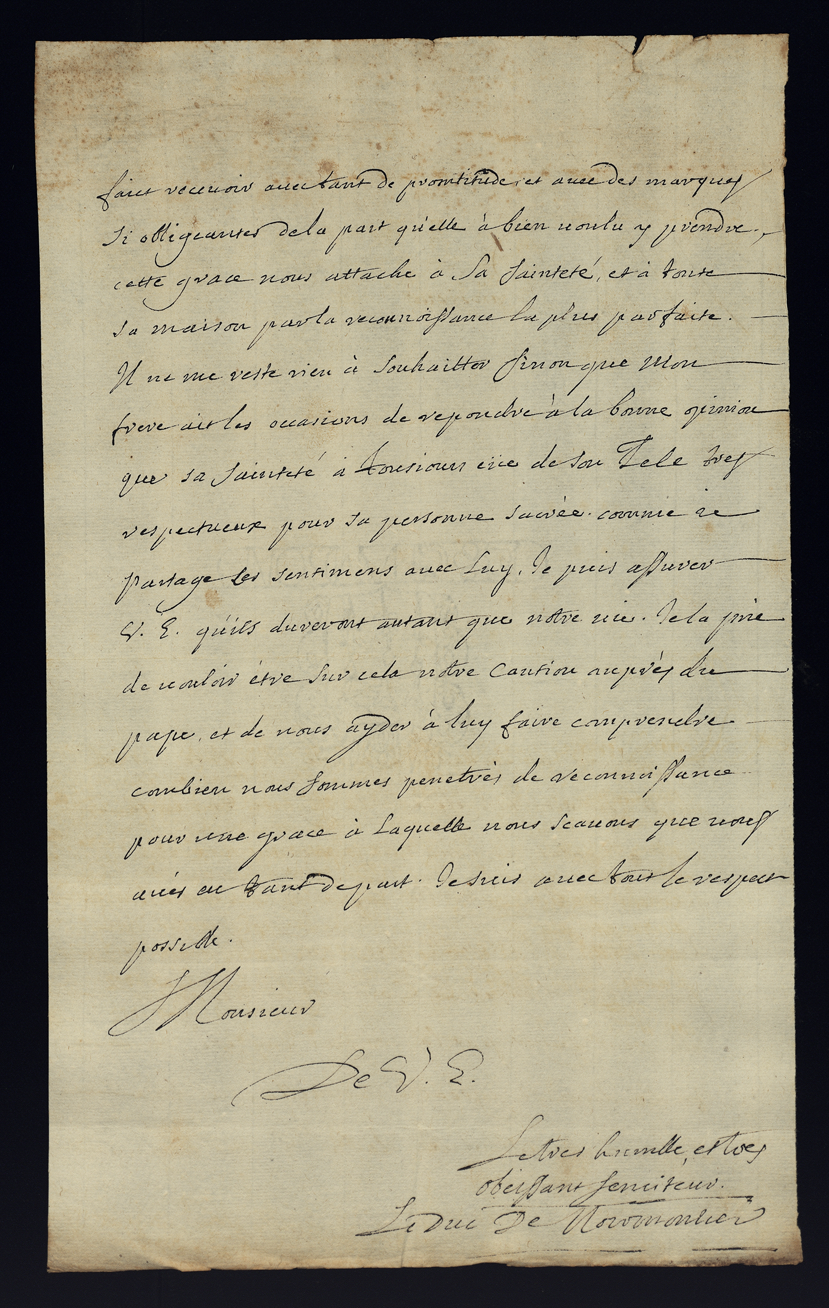 fait recevoir avec tant de promtitude, et avec des marques
si obligeantes de la part qu'elle à bien voulu y prendre,
cette grace nous attache à Sa Sainteté, et à toute
sa maison par la reconnoissance la plus parfaite.
Il ne me reste rien à souhaitter sinon que mon
frere ait les occasions de repondre à la bonne opinion
que sa sainteté à tousiours eüe de son Zele tres
respectueux pour sa personne sacrée. comme ie
partage ses sentimens avec Luy, Je puis assurer
V. E. qu'ils dureront autant que notre vie. Je la prie
de vouloir étre sur cela notre Caution auprés du
pape, et de nous ayder à luy faire comprendre
combien nous sommes penetrés de reconnoissance
pour une grace à Laquelle nous scavons que vous
avés eu tant de part. Je suis avec tout le respect
possible.
Monsieur
De V. E.
Le tres humble, et tres
obeissant serviteur.
Le Duc De